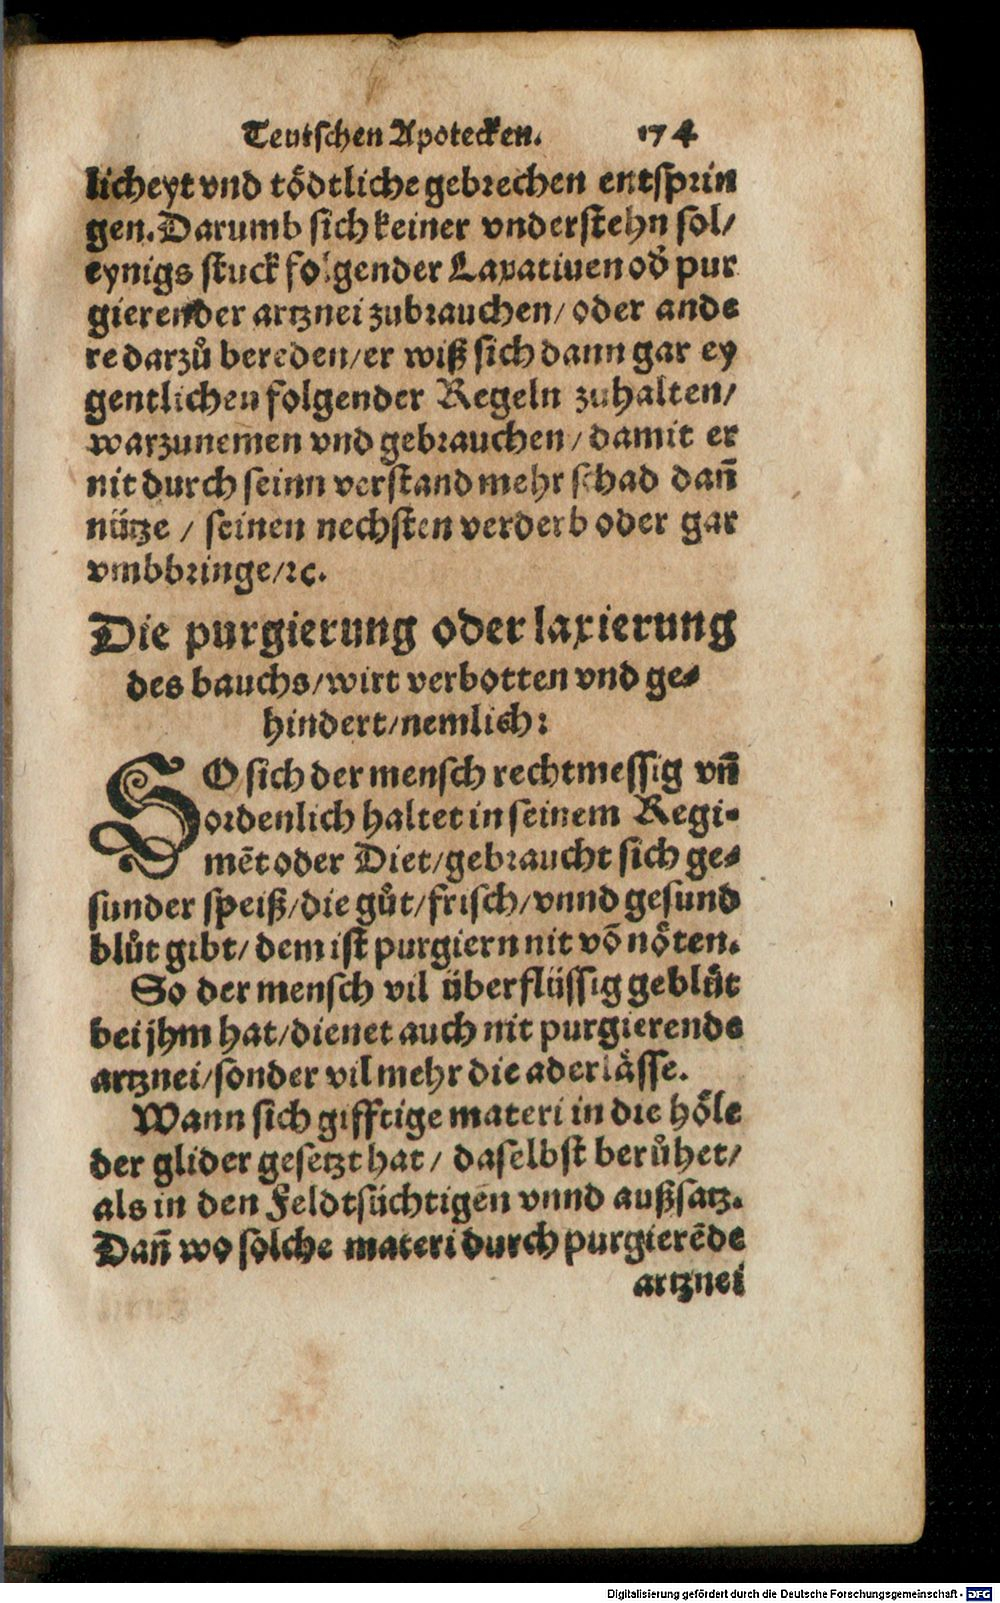 Teutschen Apotecken. 174
licheyt vnd tödtliche gebrechen entsprin
gen. Darumb sich keiner vnderstehn sol/
eynigs stuck folgender Laxatiuen od̕ pur
gierender artznei zubrauchen/ oder ande
re darzů bereden/ er wiß sich dann gar ey
gentlichen folgender Regeln zuhalten/
warzunemen vnd gebrauchen/ damit er
nit durch seinn verstand mehr schad dañ
nütze / seinen nechsten verderb oder gar
vmbbringe/ ꝛc.
Die purgierung oder laxierung
des bauchs/ wirt verbotten vnd ge-
hindert/ nemlich:
SO sich der mensch rechtmessig vñ
ordenlich haltet in seinem Regi-
mēt oder Diet/ gebraucht sich ge-
sunder speiß/ die gůt/ frisch/ vnnd gesund
blůt gibt/ dem ist purgiern nit vō nöten.
So der mensch vil überflüssig geblůt
bei jhm hat/ dienet auch nit purgierende
artznei/ sonder vil mehr die aderlässe.
Wann sich gifftige materi in die höle
der glider gesetzt hat/ daselbst berůhet/
als in den Feldtsüchtigen vnnd außsatz.
Dañ wo solche materi durch purgierēde
artznei
Digitalisierung gefördert durch die Deutsche Forschungsgemeinschaft - DFG